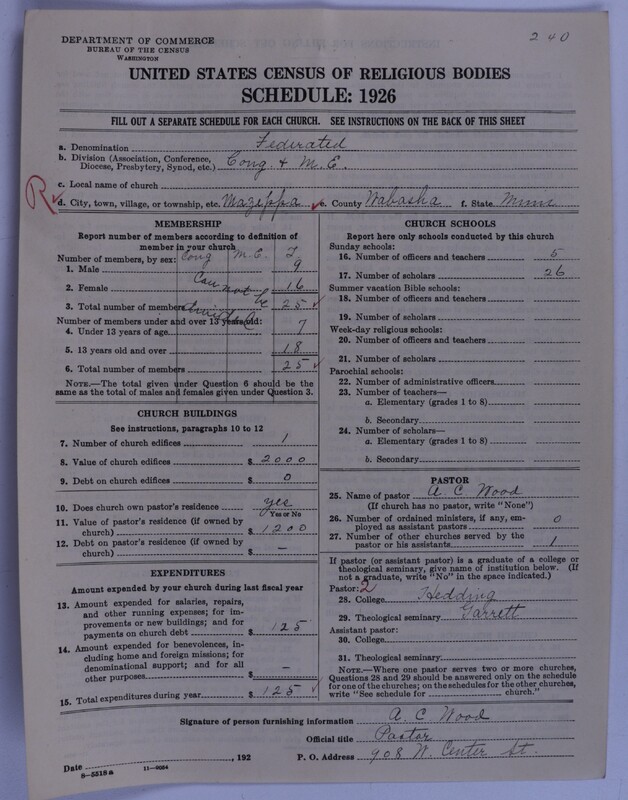 240
DEPARTMENT OF COMMERCE
BUREAU OF THE CENSUS
WASHINGTON
UNITED STATES CENSUS OF RELIGIOUS BODIES
SCHEDULE: 1926
FILL OUT A SEPARATE SCHEDULE FOR EACH CHURCH. SEE INSTRUCTIONS ON THE BACK OF THIS SHEET
a. Denomination Federated
b. Division (Association, Conference, Diocese, Presbytery, Synod, etc.) Cong. & M.E.
c. Local name of church
R d. City, town, village, or township, etc. Mazeppa e. County Wabasha f. State Minn
MEMBERSHIP
Report number of members according to definition of member in your church
Number of members, by sex: Cong M.E.
1. Male 9
2. Female 16
Can not be
3. Total number of members 25
Number of members under and over 13 years old:
4. Under 13 years of age 7
5. 13 years old and over 18
6. Total number of members 25
NOTE.—The total given under Question 6 should be the same as the total of males and females given under Question 3.
CHURCH BUILDINGS
See instructions, paragraphs 10 to 12
7. Number of church edifices 1
8. Value of church edifices $ 2000
9. Debt on church edifices $ 0
10. Does church own pastor's residence? yes
Yes or No
11. Value of pastor's residence (if owned by church) $ 1200
12. Debt on pastor's residence (if owned by church) $ –
EXPENDITURES
Amount expended by your church during last fiscal year
13. Amount expended for salaries, repairs, and other running expenses; for improvements or new buildings; and for payments on church debt $ 125
14. Amount expended for benevolences, including home and foreign missions; for denominational support; and for all other purposes $ –
15. Total expenditures during year $ 125
CHURCH SCHOOLS
Report here only schools conducted by this church
Sunday schools:
16. Number of officers and teachers 5
17. Number of scholars 26
Summer vacation Bible schools:
18. Number of officers and teachers
19. Number of scholars
Week-day religious schools:
20. Number of officers and teachers
21. Number of scholars
Parochial schools:
22. Number of administrative officers
23. Number of teachers—
a. Elementary (grades 1 to 8)
b. Secondary
24. Number of scholars—
a. Elementary (grades 1 to 8)
b. Secondary
PASTOR
25. Name of pastor A. C. Wood
(If church has no pastor, write "None")
26. Number of ordained ministers, if any, employed as assistant pastors 0
27. Number of other churches served by the pastor or his assistants 1
If pastor (or assistant pastor) is a graduate of a college or theological seminary, give name of institution below. (If not a graduate, write "No" in the space indicated.)
Pastor: 2
28. College Hedding
29. Theological seminary Garrett
Assistant pastor:
30. College
31. Theological seminary
NOTE.—Where one pastor serves two or more churches, Questions 28 and 29 should be answered only on the schedule for one of the churches; on the schedules for the other churches, write "See schedule for church."
Signature of person furnishing information A. C. Wood
Official title Pastor
Date , 192 P. O. Address 908 W. Center St.
8-5518a 11-9034